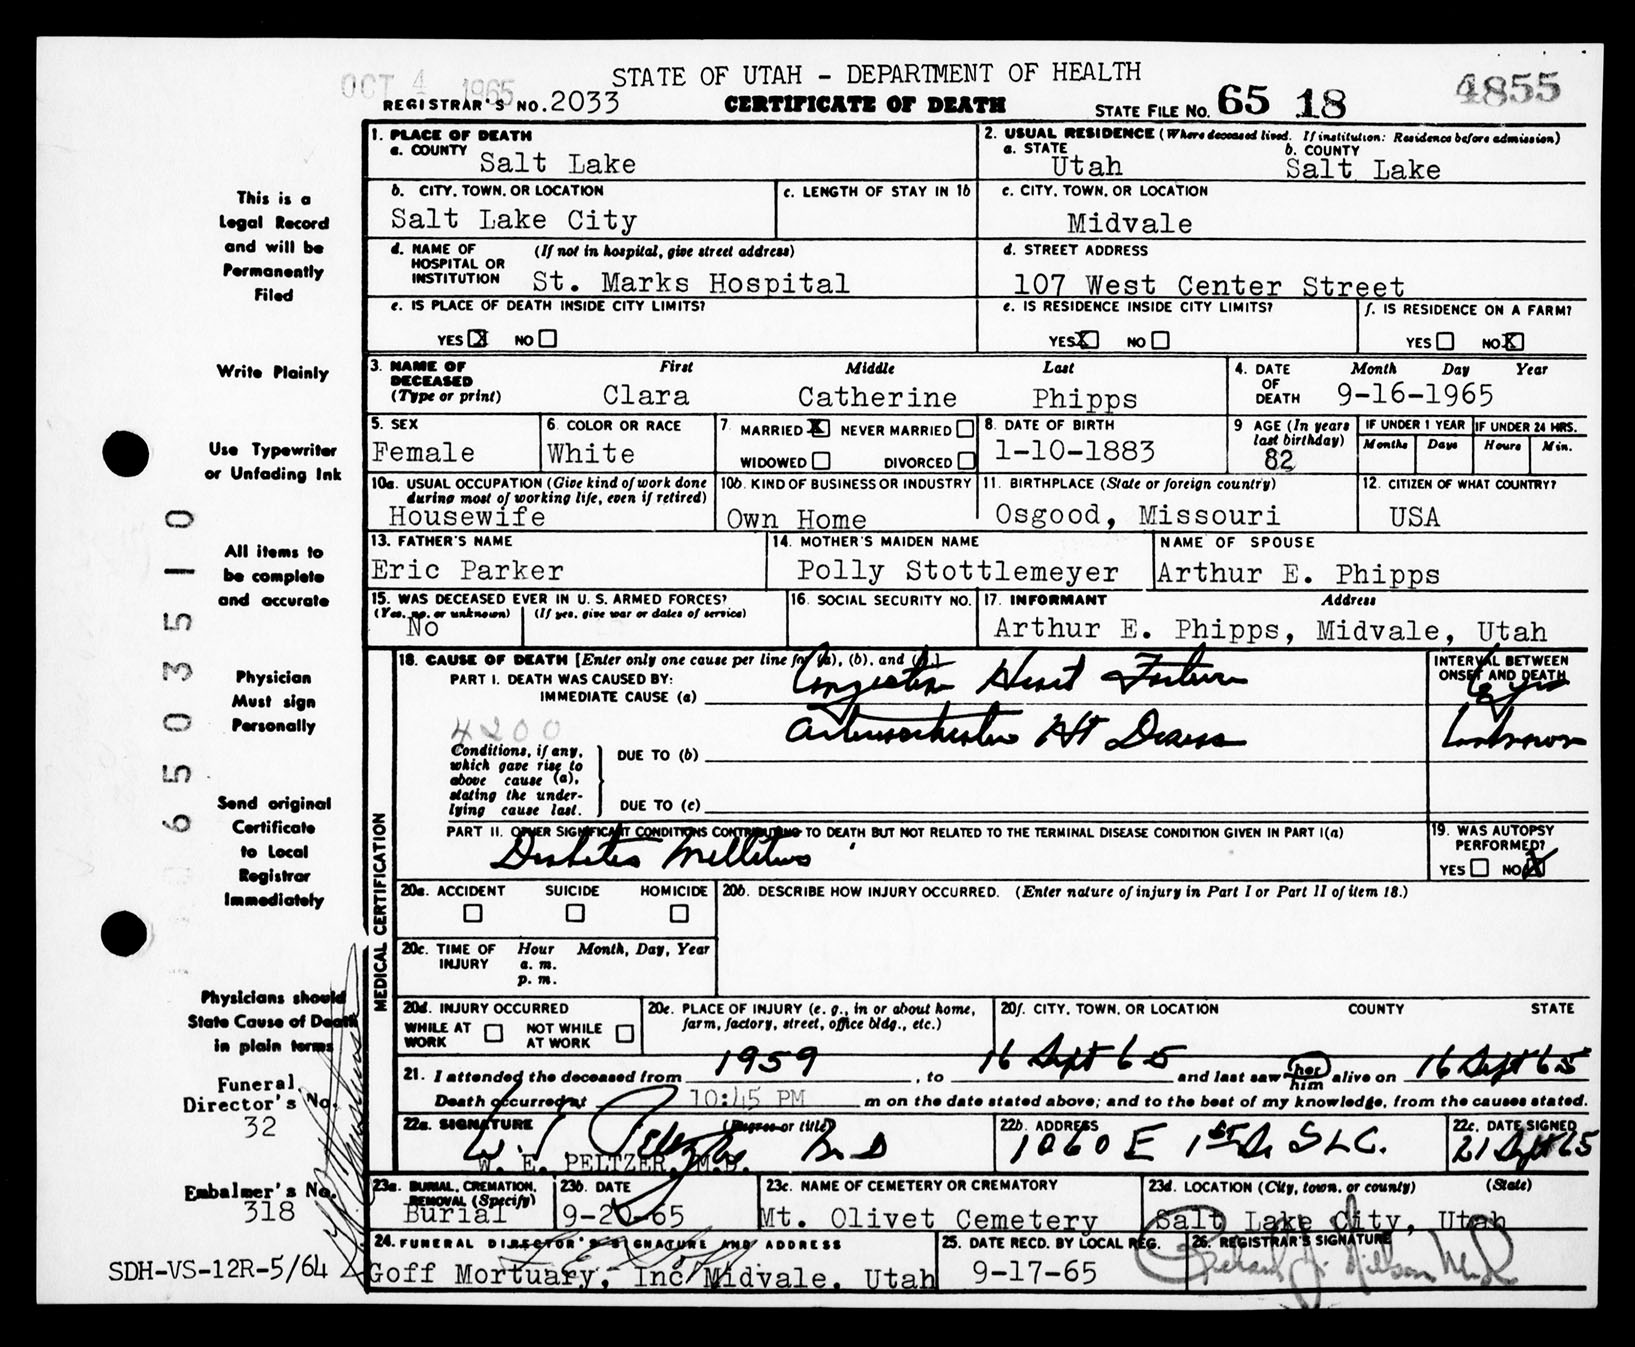 OCT 4 1965
STATE OF UTAH - DEPARTMENT OF HEALTH
REGISTRAR'S NO. 2033
CERTIFICATE OF DEATH
STATE FILE NO. 65 18 4855
1. PLACE OF DEATH
a. COUNTY Salt Lake
2. USUAL RESIDENCE (Where deceased lived. If institution: Residence before admission)
a. STATE Utah
b. COUNTY Salt Lake
b. CITY, TOWN, OR LOCATION
Salt Lake City
c. LENGTH OF STAY IN 1b
c. CITY, TOWN, OR LOCATION
Midvale
d. NAME OF HOSPITAL OR INSTITUTION (If not in hospital, give street address)
St. Marks Hospital
d. STREET ADDRESS
107 West Center Street
e. IS PLACE OF DEATH INSIDE CITY LIMITS?
YES X NO
e. IS RESIDENCE INSIDE CITY LIMITS?
YES X NO
f. IS RESIDENCE ON A FARM?
YES NO X
3. NAME OF DECEASED (Type or print)
First Middle Last
Clara Catherine Phipps
4. DATE OF DEATH
Month Day Year
9-16-1965
5. SEX
Female
6. COLOR OR RACE
White
7. MARRIED X NEVER MARRIED
WIDOWED DIVORCED
8. DATE OF BIRTH
1-10-1883
9 AGE (In years last birthday)
82
IF UNDER 1 YEAR
Months Days
IF UNDER 24 HRS.
Hours Min.
10a. USUAL OCCUPATION (Give kind of work done during most of working life, even if retired)
Housewife
10b. KIND OF BUSINESS OR INDUSTRY
Own Home
11. BIRTHPLACE (State or foreign country)
Osgood, Missouri
12. CITIZEN OF WHAT COUNTRY?
USA
13. FATHER'S NAME
Eric Parker
14. MOTHER'S MAIDEN NAME
Polly Stottlemeyer
NAME OF SPOUSE
Arthur E. Phipps
15. WAS DECEASED EVER IN U. S. ARMED FORCES?
(Yes, no, or unknown) (If yes, give war or dates of service)
No
16. SOCIAL SECURITY NO.
17. INFORMANT Address
Arthur E. Phipps, Midvale, Utah
MEDICAL CERTIFICATION
18. CAUSE OF DEATH [Enter only one cause per line for (a), (b), and (c).]
PART I. DEATH WAS CAUSED BY:
IMMEDIATE CAUSE (a) Congestive Heart Failure
INTERVAL BETWEEN ONSET AND DEATH
6 yrs
4200
Conditions, if any, which gave rise to above cause (a), stating the underlying cause last.
DUE TO (b) Arteriosclerotic Ht Disease
Unknown
DUE TO (c)
PART II. OTHER SIGNIFICANT CONDITIONS CONTRIBUTING TO DEATH BUT NOT RELATED TO THE TERMINAL DISEASE CONDITION GIVEN IN PART I(a)
Diabetes Mellitus
19. WAS AUTOPSY PERFORMED?
YES NO X
20a. ACCIDENT SUICIDE HOMICIDE
20b. DESCRIBE HOW INJURY OCCURRED. (Enter nature of injury in Part I or Part II of item 18.)
20c. TIME OF INJURY Hour Month, Day, Year
a. m.
p. m.
20d. INJURY OCCURRED
WHILE AT WORK NOT WHILE AT WORK
20e. PLACE OF INJURY (e. g., in or about home, farm, factory, street, office bldg., etc.)
20f. CITY, TOWN, OR LOCATION COUNTY STATE
21. I attended the deceased from 1959, to 16 Sept 65 and last saw her him alive on 16 Sept 65
Death occurred at 10:45 PM m on the date stated above; and to the best of my knowledge, from the causes stated.
22a. SIGNATURE (Degree or title)
W. E. Peltzer MD
W. E. PELTZER, M.D.
22b. ADDRESS
1060 E 1st So SLC.
22c. DATE SIGNED
21 Sept 65
23a. BURIAL, CREMATION, REMOVAL (Specify)
Burial
23b. DATE
9-20-65
23c. NAME OF CEMETERY OR CREMATORY
Mt. Olivet Cemetery
23d. LOCATION (City, town, or county) (State)
Salt Lake City, Utah
24. FUNERAL DIRECTOR'S SIGNATURE AND ADDRESS
Goff Mortuary, Inc Midvale, Utah
25. DATE RECD. BY LOCAL REG.
9-17-65
26. REGISTRAR'S SIGNATURE
This is a
Legal Record
and will be
Permanently
Filed
Write Plainly
Use Typewriter
or Unfading Ink
All items to
be complete
and accurate
Physician
Must sign
Personally
Send original
Certificate
to Local
Registrar
Immediately
Physicians should
State Cause of Death
in plain terms
Funeral
Director's No.
32
Embalmer's No.
318
SDH-VS-12R-5/64
6 5 0 3 5 1 0